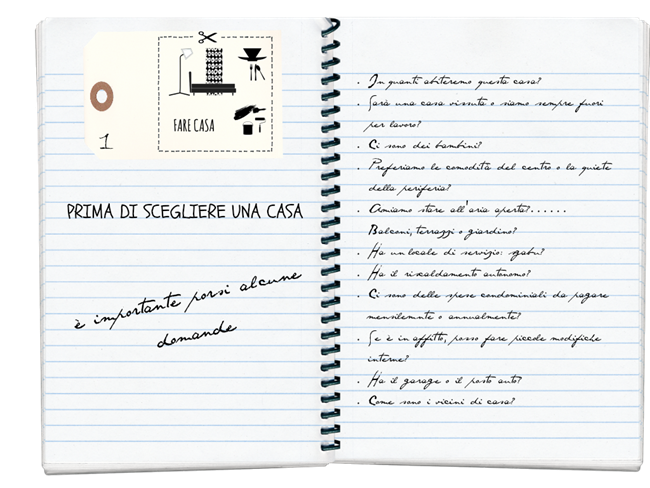 FARE CASA
1
PRIMA DI SCEGLIERE UNA CASA
è importante porsi alcune
domande
. In quanti abiteremo questa casa?
. Sarà una casa vissuta o siamo sempre fuori
per lavoro?
. Ci sono dei bambini?
. Preferiamo le comodità del centro o la quiete
della periferia?
. Amiamo stare all'aria aperta?......
Balconi, terrazzi o giardino?
. Ha un locale di servizio: gabu?
. Ha il riscaldamento autonomo?
. Ci sono delle spese condominiali da pagare
mensilemnte o annualmente?
. Se è in affitto, posso fare piccole modifiche
interne?
. Ha il garage o il posto auto?
. Come sono i vicini di casa?